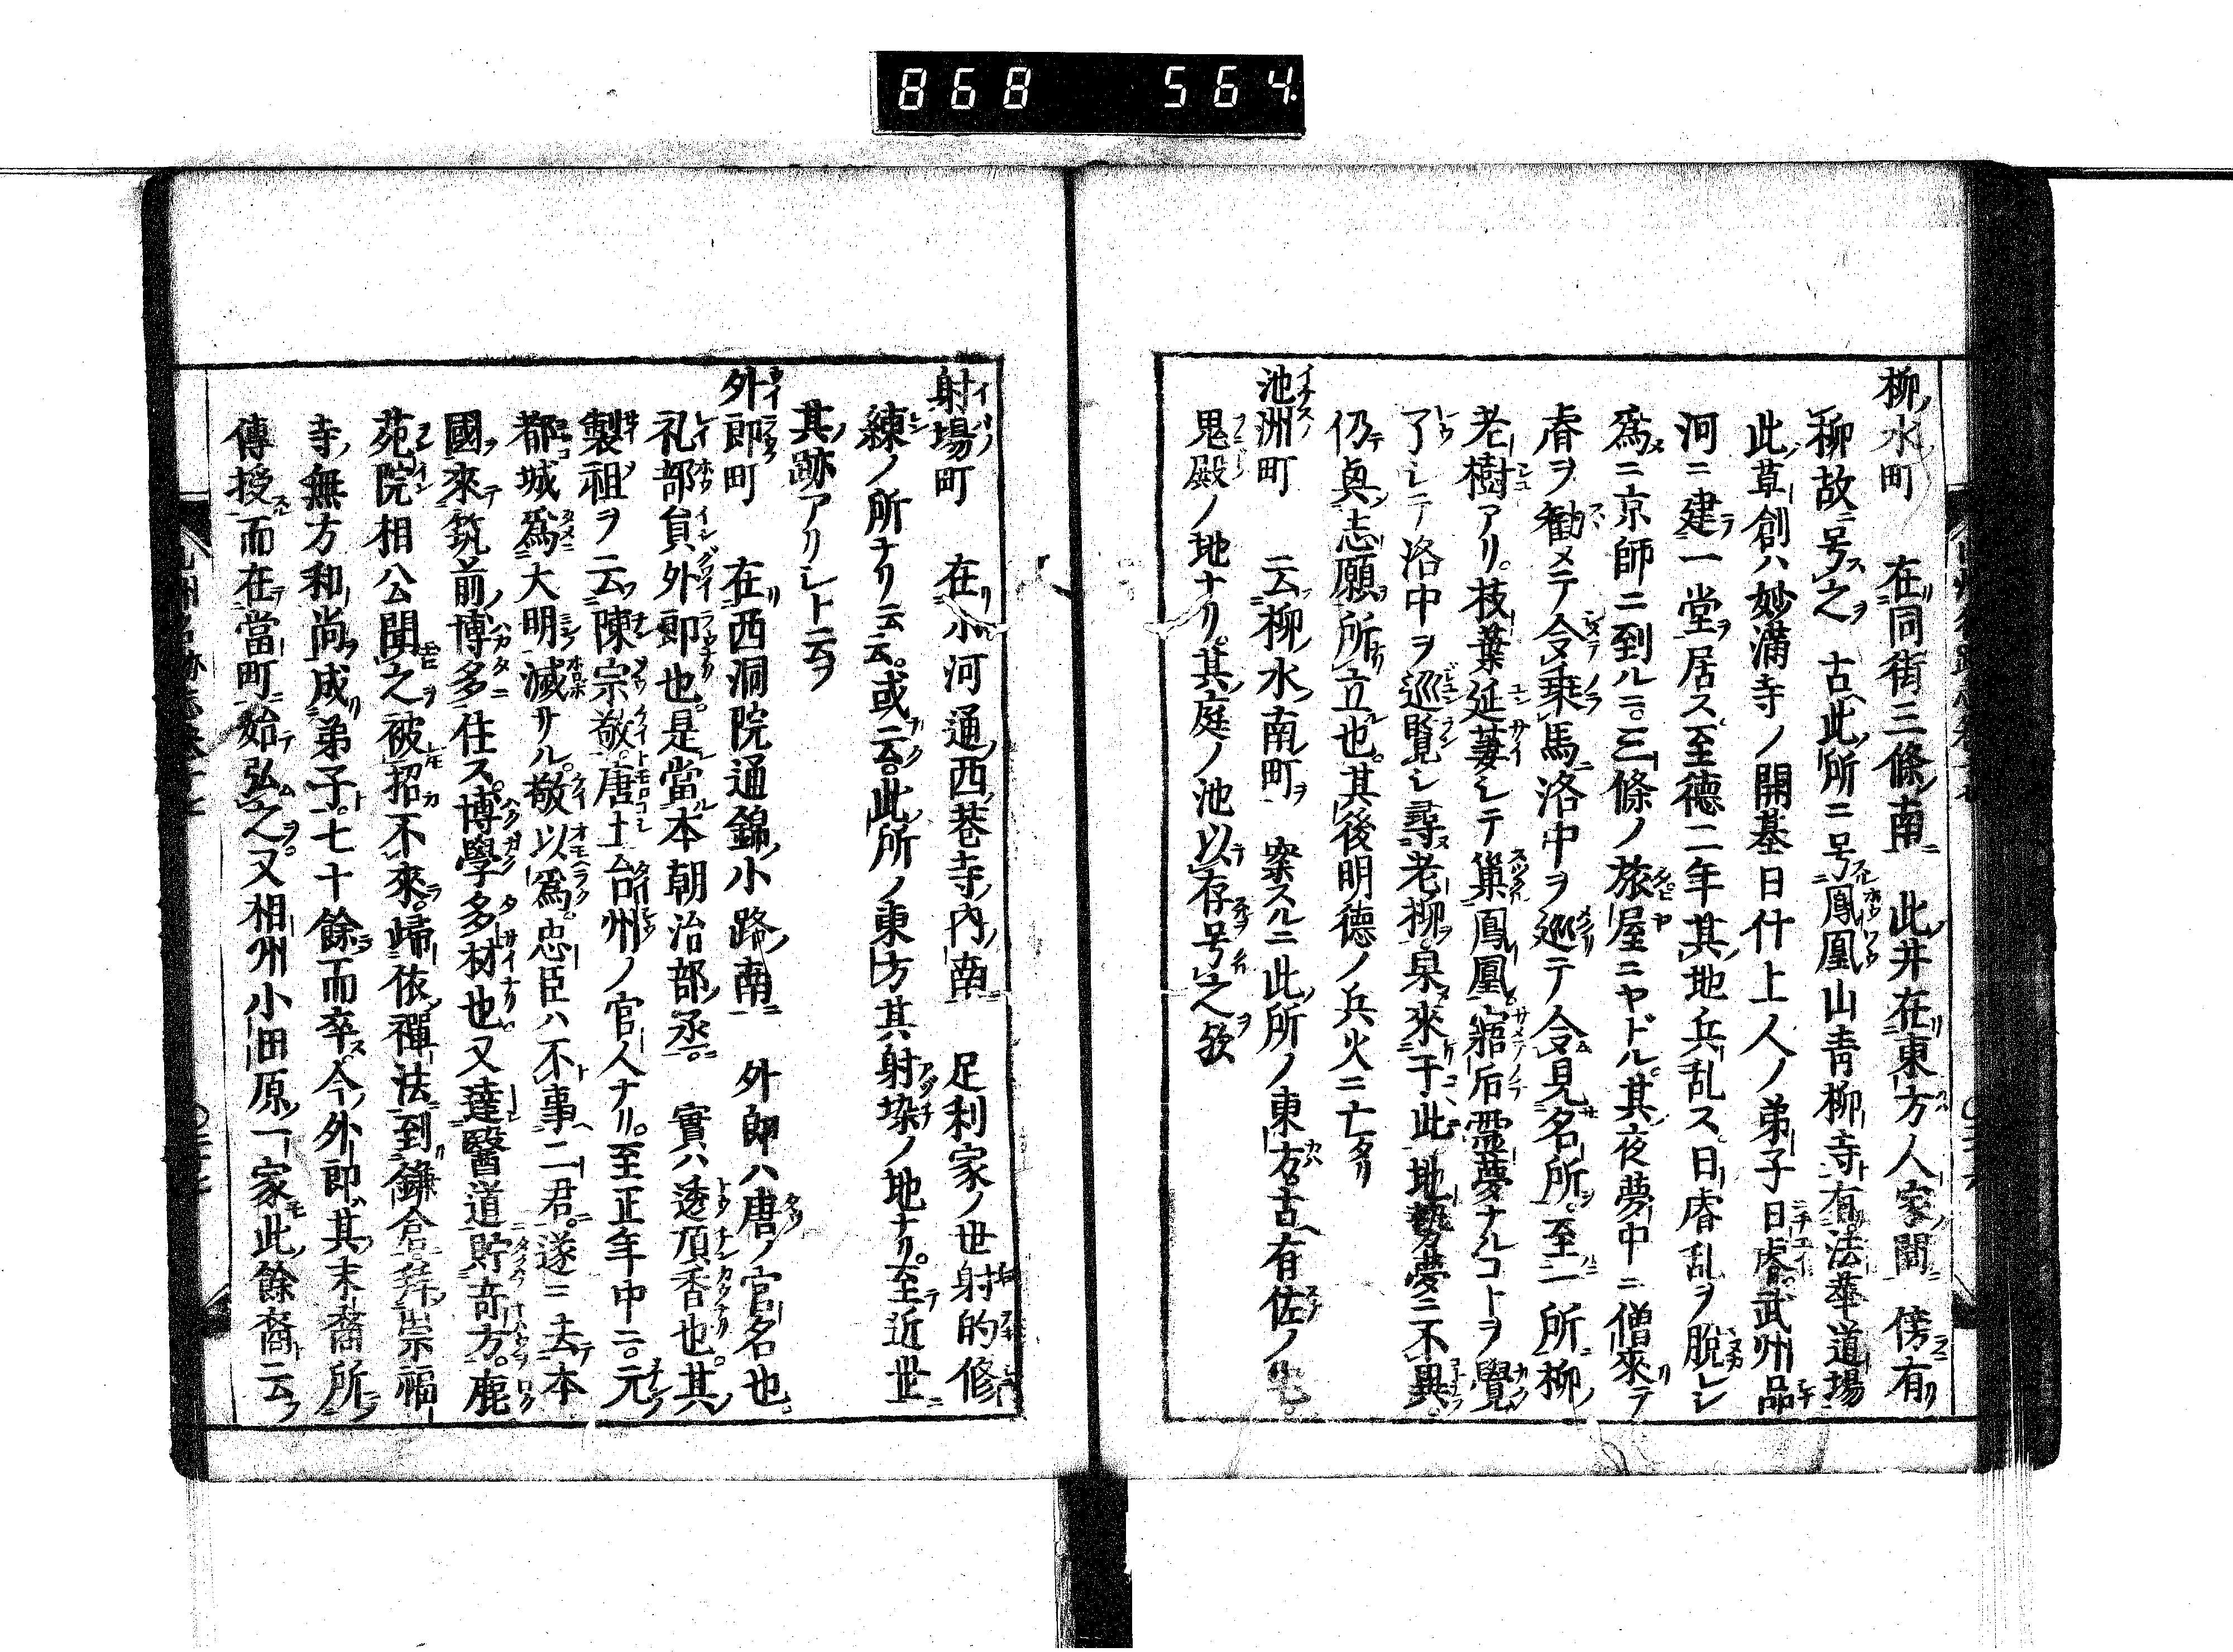 868 564
柳水町 在同街三條南 此井在東方人家間 傍有
柳故号之 古此所ニ号鳳凰山青柳寺有法華道場
此草創ハ妙満寺ノ開基日什上人ノ弟子日睿武州品
河ニ建一堂居ス至徳二年其地兵乱ス日睿乱ヲ脱レシ
為ニ京師ニ到ル三條ノ旅屋ニヤドル其夜夢中ニ僧來テ
睿ヲ勧メテ令乗馬洛中ヲ巡テ令見名所至一所柳
老樹アリ枝葉延萋シテ巣鳳凰寤后霊夢ナルコトヲ覺
了シテ洛中ヲ巡覧シ尋老柳泉來于此地勢夢ニ不異
仍眞志願所立也其後明徳ノ兵火ニ亡
池洲町 云柳水南町 案スルニ此所ノ東方古有佐ノ
鬼殿ノ地ナリ其庭ノ池以存号之欤
射場町 在小河通西巷寺内南 足利家ノ世射的修
練ノ所ナリ云云或云此所ノ東方其射垜ノ地ナリ至近世
其跡アリシト云
外郎町 在西洞院通錦小路南 外郎ハ唐ノ官名也
礼部員外郎也是當本朝治部丞 實ハ透頂香也其
製祖ヲ云陳宗敬唐土台州ノ官人ナリ至正年中ニ元
都城為大明滅サル敬以為忠臣ハ不事二君遂ニ去本
國來筑前博多住ス博學多材也又達醫道貯竒方鹿
苑院相公聞之被招不來歸依禪法到鎌倉拜崇福
寺無方和尚成弟子七十餘而卒今外郎其末裔所
傳授而在當町始弘之又相州小田原一家此餘裔云